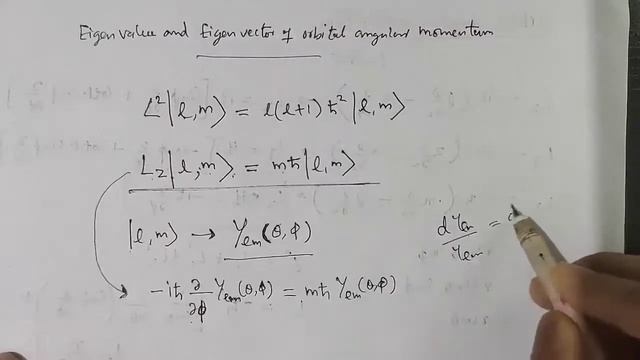 Eigen value and Eigen vector of orbital angular momentum
L²|ℓ,m⟩ = ℓ(ℓ+1)ℏ²|ℓ,m⟩
L_z|ℓ,m⟩ = mℏ|ℓ,m⟩
|ℓ,m⟩ → Y_ℓm(θ,ϕ)
dY_ℓm/Y_ℓm =
-iℏ ∂/∂ϕ Y_ℓm(θ,ϕ) = mℏ Y_ℓm(θ,ϕ)